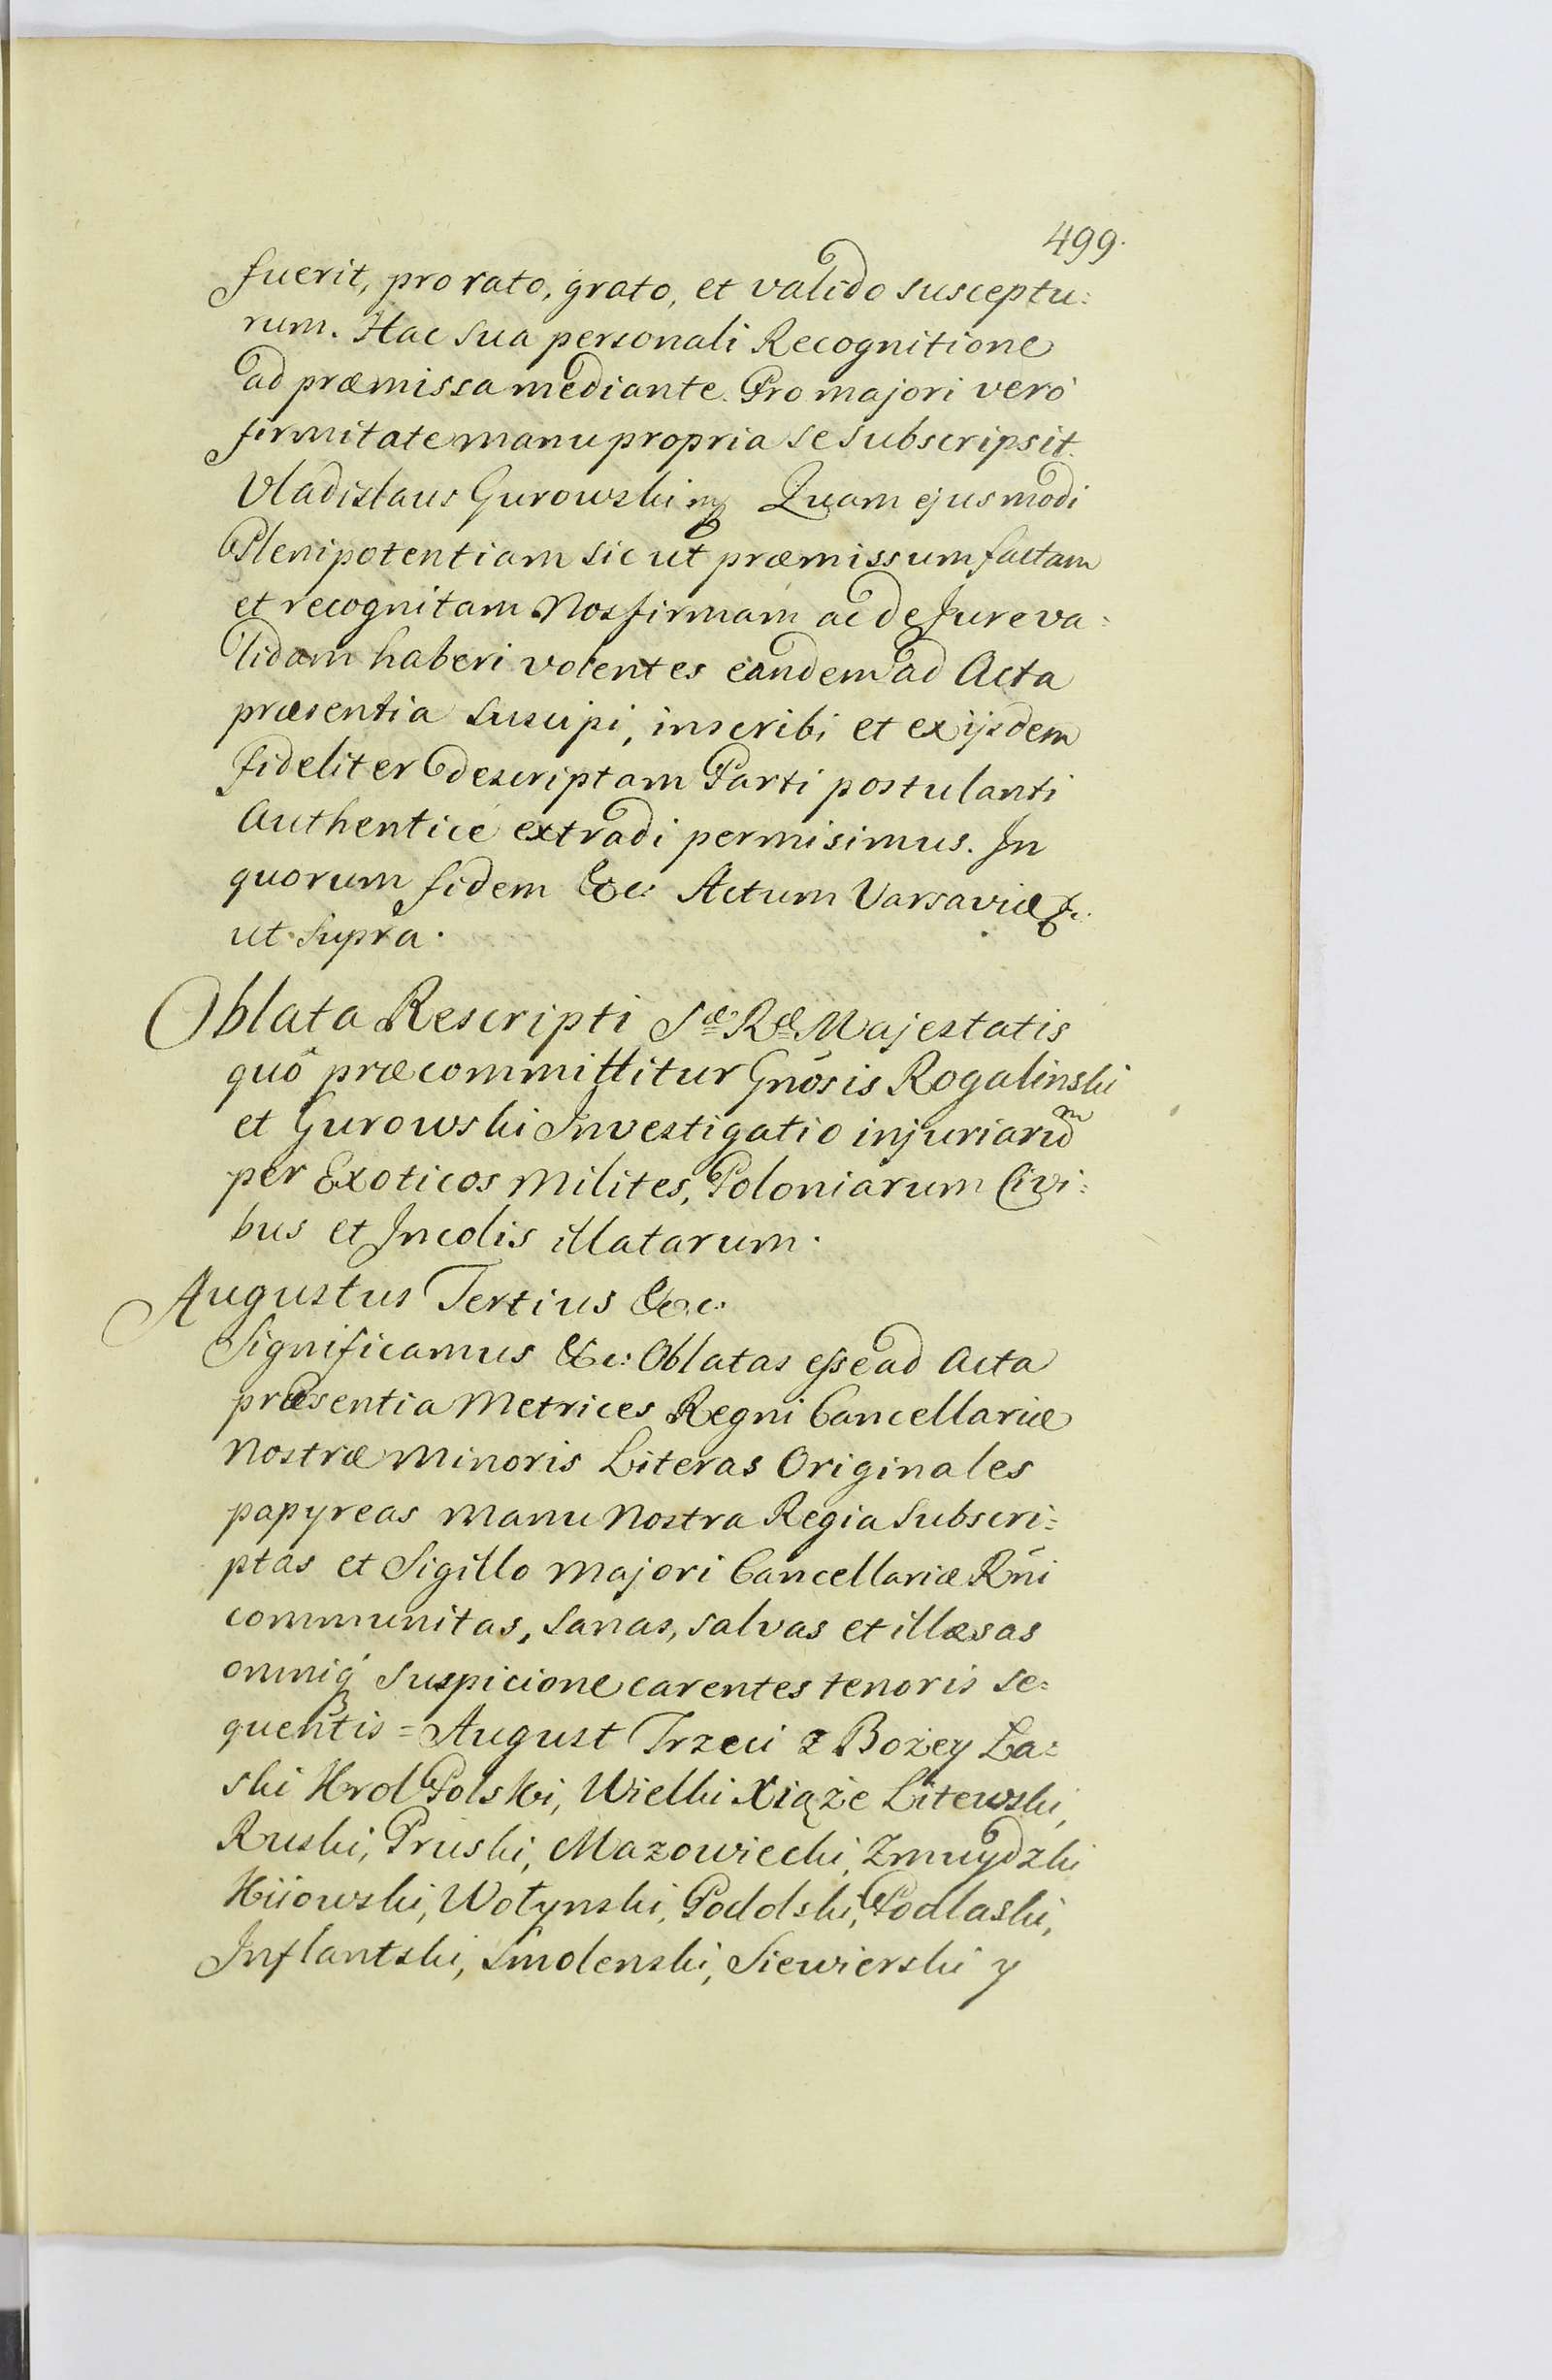 499.
fuerit, pro rato, grato, et valido susceptu:
rum. Hac sua personali Recognitione
ad præmissa mediante. Pro majori verò
firmitate manu propria se subscripsit.
Vladislaus Gurowski mp Quam ejusmodi
Plenipotentiam sic ut præmissum factam
et recognitam Nos firmam ac de Jure va:
lidam haberi volentes eandem ad Acta
præsentia suscipi, inscribi et ex ijsdem
fideliter descriptam Parti postulanti
Authenticè extradi permisimus. In
quorum fidem &c: Actum Varsaviæ &c.
ut supra.
Oblata Rescripti Sæ Ræ Majestatis
quô præcommittitur Gnosis Rogalinski
et Gurowski Investigatio injuriarum
per Exoticos Milites, Poloniarum Civi:
bus et Incolis illatarum.
Augustus Tertius &c:
Significamus &c: Oblatas esse ad Acta
præsentia Metrices Regni Cancellariæ
Nostræ Minoris Literas Originales
papyreas Manu Nostra Regia Subscri:
ptas et Sigillo Majori Cancellariæ Rni
communitas, sanas, salvas et illæsas
omniq́ Suspicione carentes tenoris se:
quentis = August Trzeci z Bożey Ła:
ski Krol Polski, Wielki Xiąże Litewski,
Ruski, Pruski, Mazowiecki, Zmuydzki
Kiiowski, Wołynski, Podolski, Podlaski,
Inflantski, Smolenski, Siewierski y